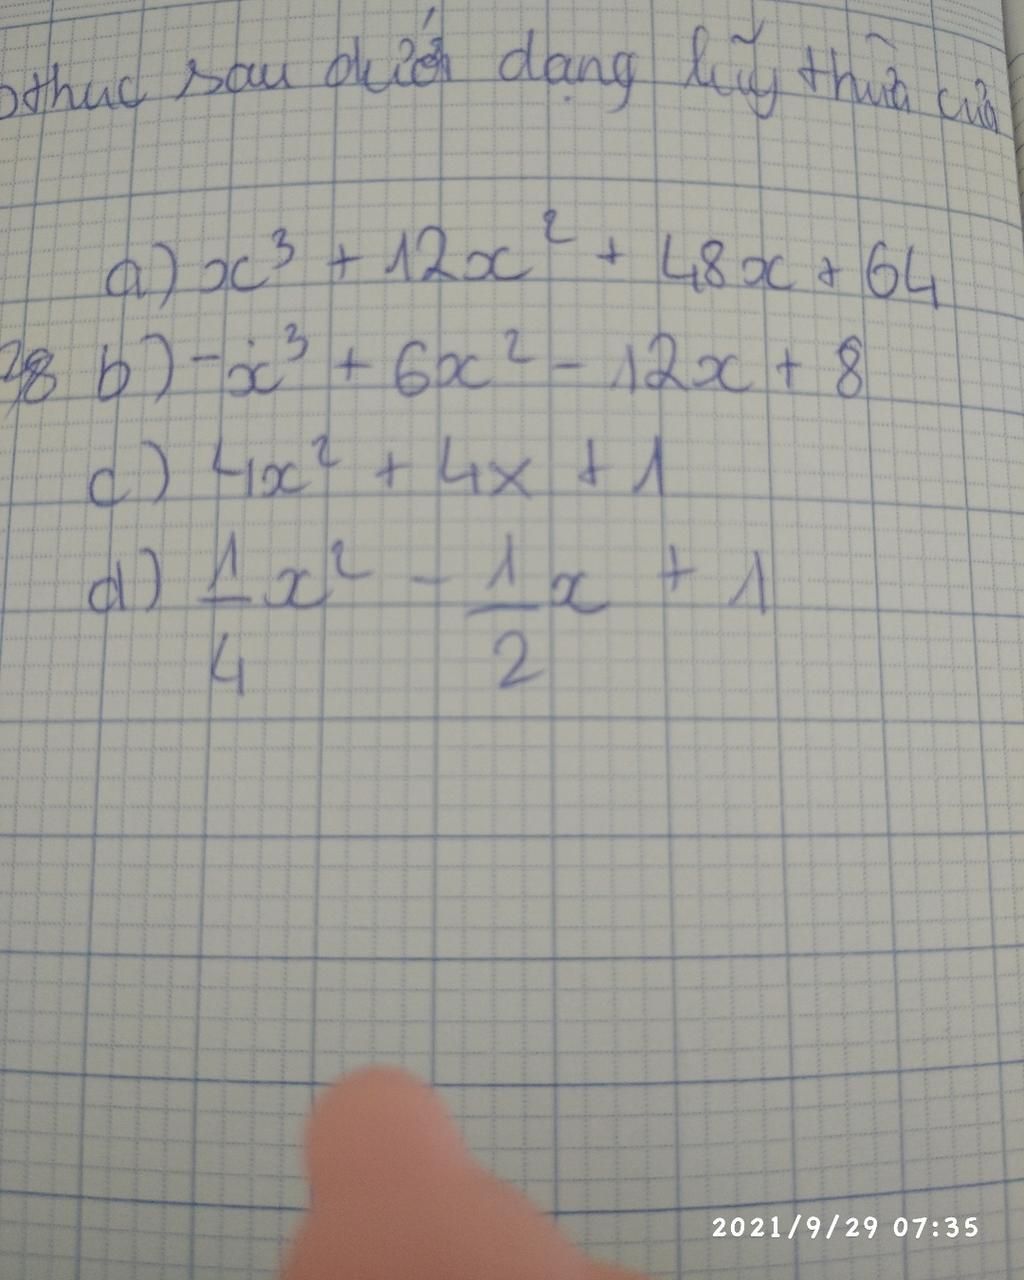 thức sau dưới dạng lũy thừa của
a) x³ + 12x² + 48x + 64
28 b) -x³ + 6x² - 12x + 8
c) 4x² + 4x + 1
d) 1/4 x² - 1/2 x + 1
2021/9/29 07:35